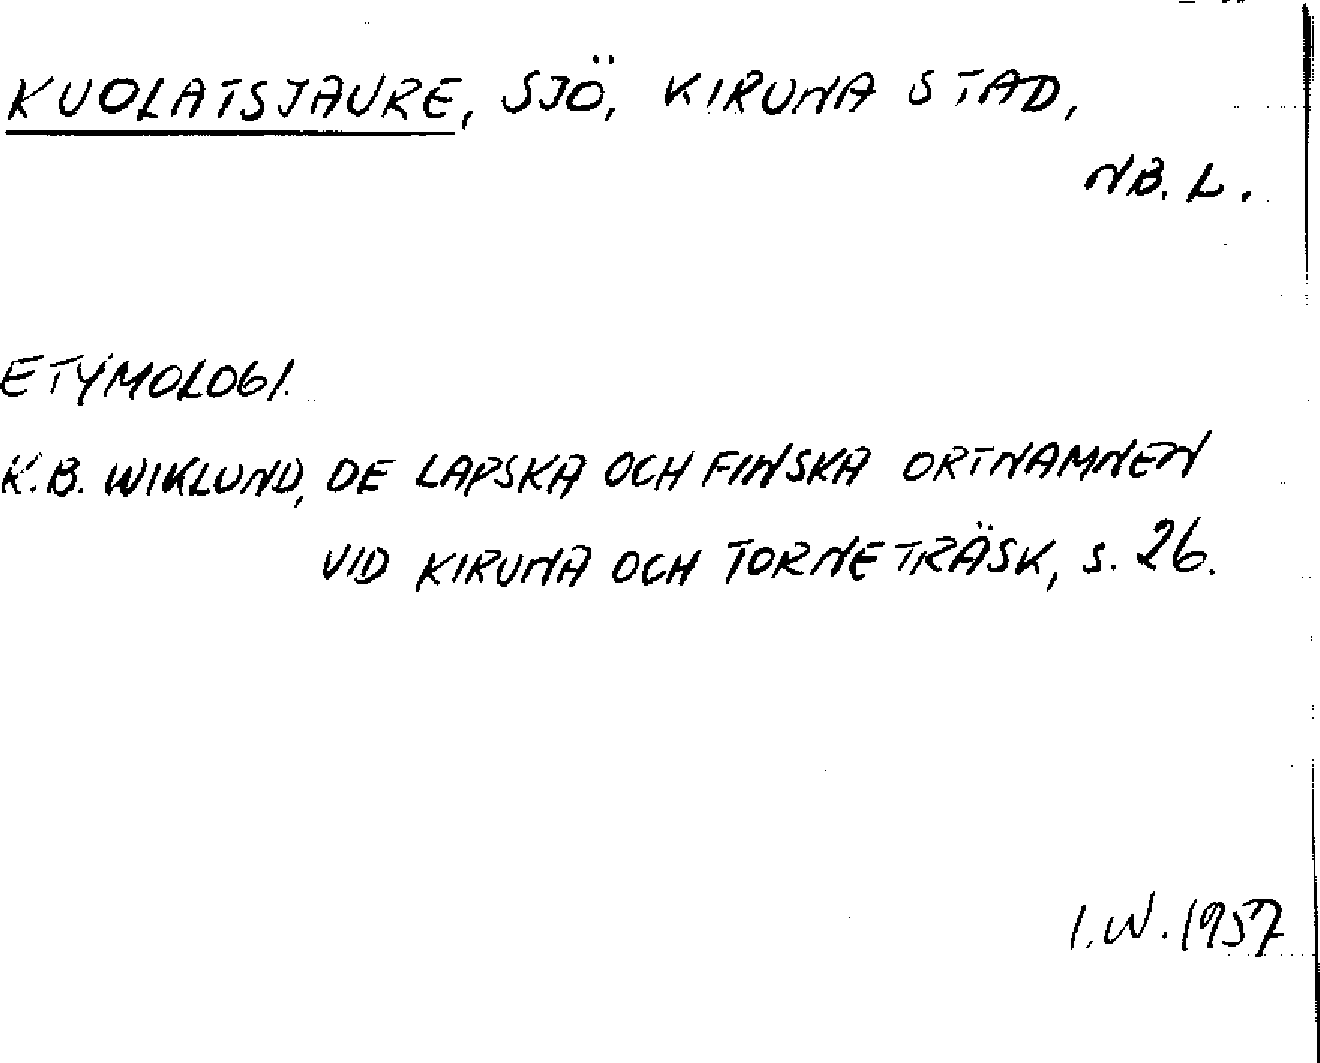 KUOLATSJAURE, SJÖ, KIRUNA STAD,
NB. L.
ETYMOLOGI.
K.B. WIKLUND, DE LAPSKA OCH FINSKA ORTNAMNEN
VID KIRUNA OCH TORNETRÄSK, S. 26.
I.W. 1957